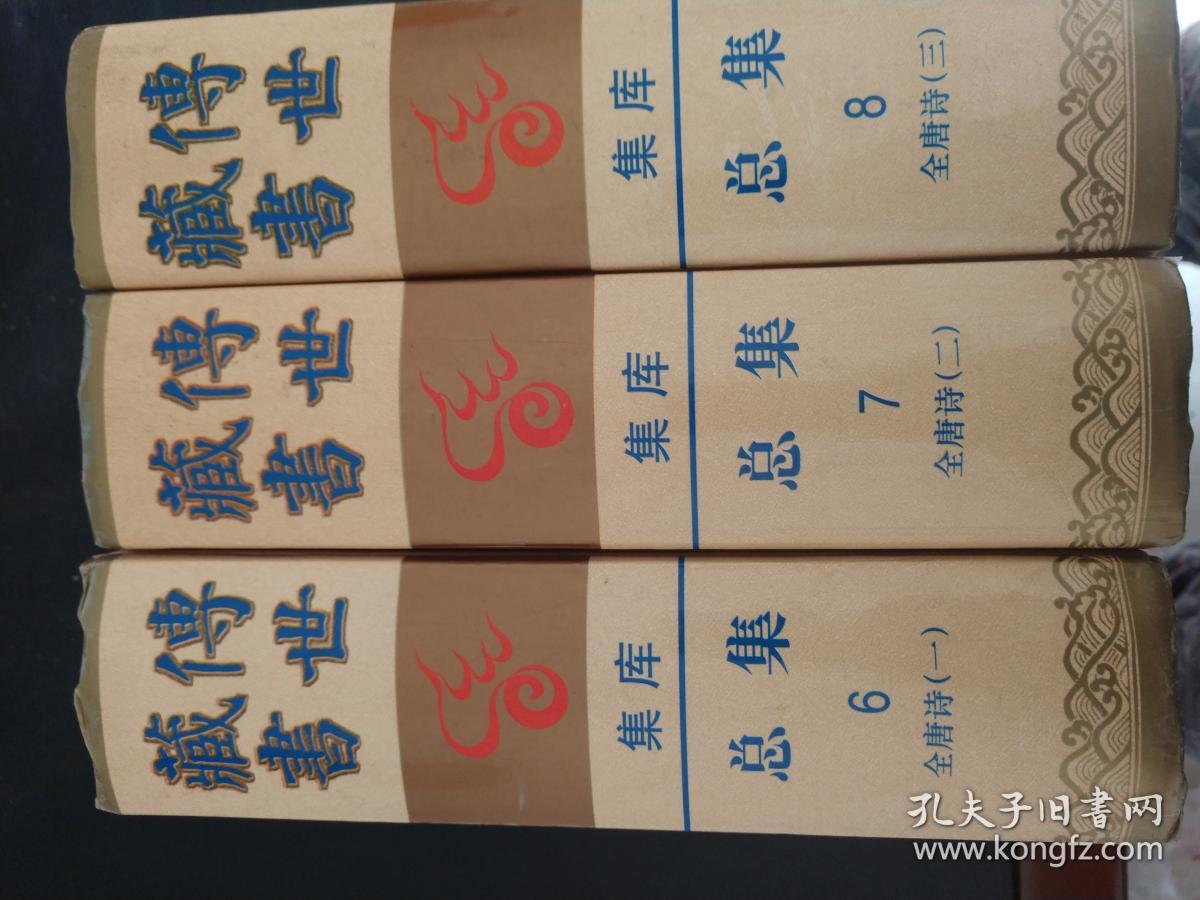 傳世
藏書
集库
总集
6
全唐诗(一)
傳世
藏書
集库
总集
7
全唐诗(二)
傳世
藏書
集库
总集
8
全唐诗(三)
孔夫子旧書网
www.kongfz.com